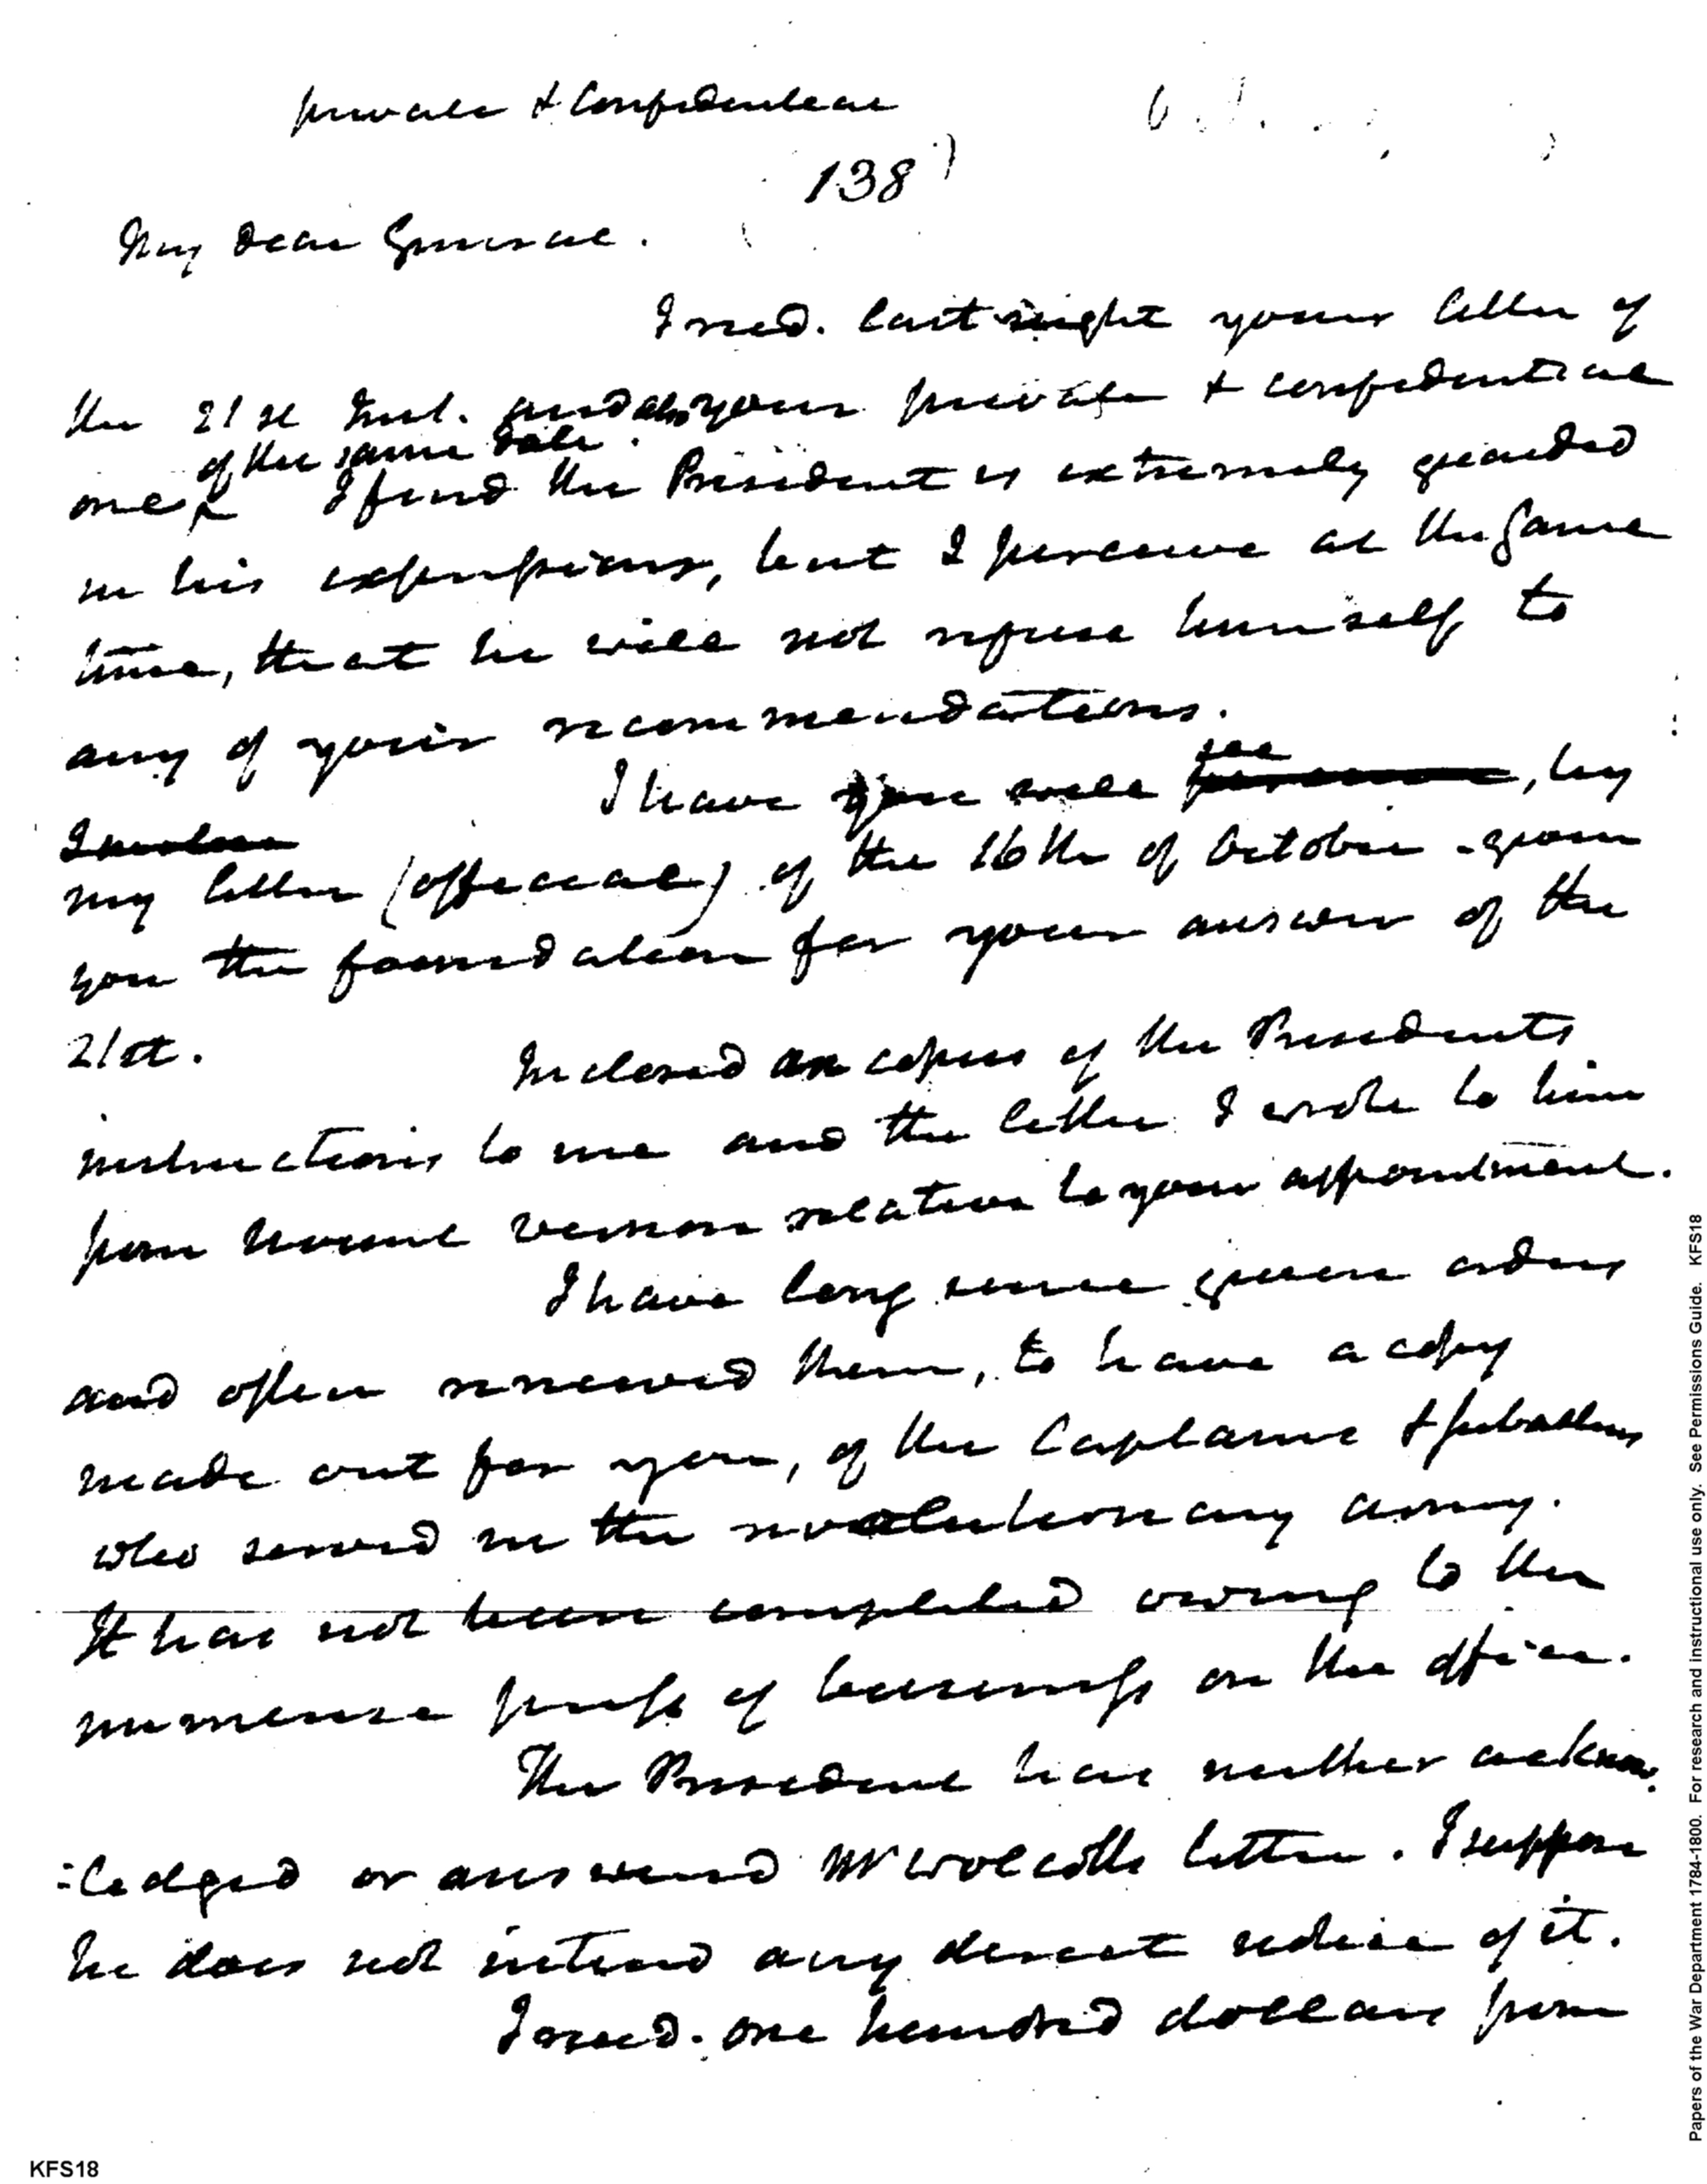 private & confidential
138
My dear General.
I recd. last night your letter of
the 21st Inst. and also your private & confidential
of the same date.
one^ I find the President is extremely guarded
in his expressions, but I perceive at the same
time, that he will not refuse himself to
any of your recommendations.
see
I have you will perceive, by
I enclose
my letter (official) of the 16th of October given
you the foundation for your answer of the
21st.
Inclosed are copies of the Presidents
instructions to me and the letter I wrote to him
from mount vernon relative to your appointment.
I have long since given orders
and often renewed them, to have a copy
made out for you, of the Captains & subalterns
who served in the revolutionary army.
It has not been completed owing to the
immense press of business on the office.
The President has neither acknow:
:ledged or answered Mr Wolcotts letter. I suppose
he does not intend any direct notice of it.
I recd. one hundred dollars from
KFS18
Papers of the War Department 1784-1800. For research and instructional use only. See Permissions Guide. KFS18